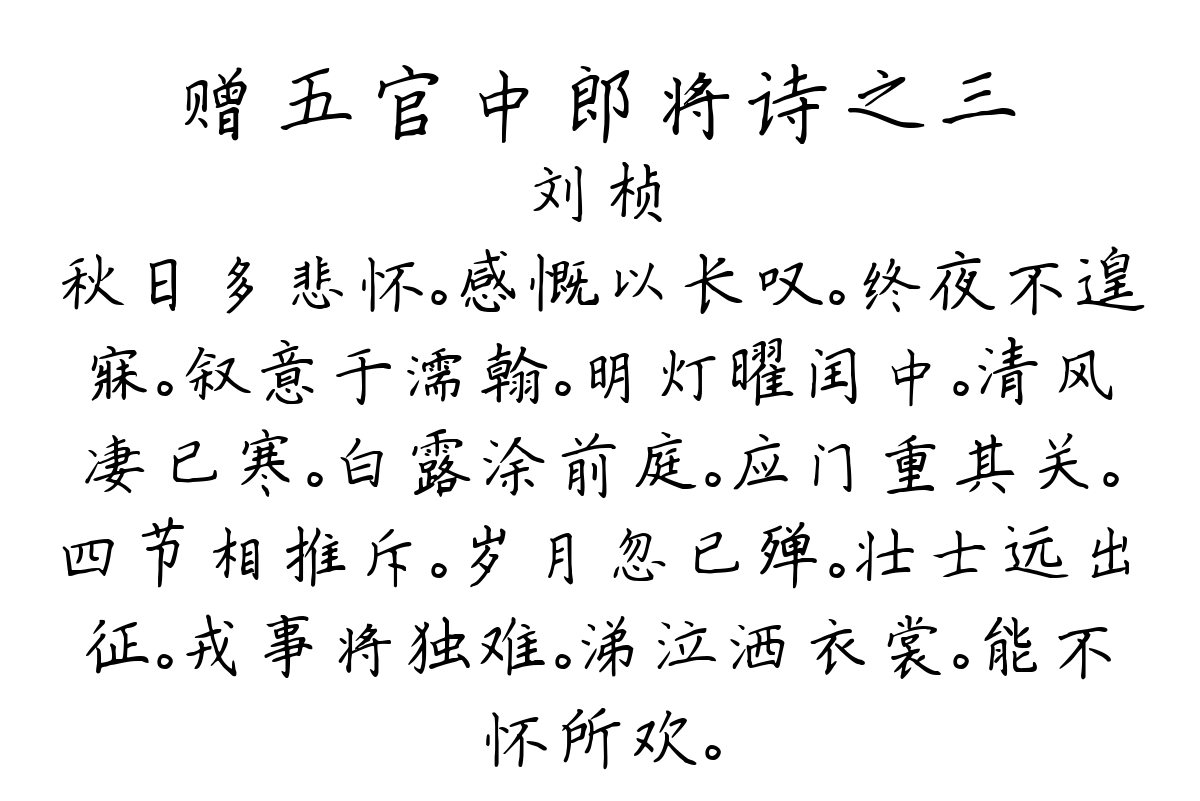 赠五官中郎将诗之三
刘桢
秋日多悲怀。感慨以长叹。终夜不遑
寐。叙意于濡翰。明灯曜闺中。清风
凄已寒。白露涂前庭。应门重其关。
四节相推斥。岁月忽已殚。壮士远出
征。戎事将独难。涕泣洒衣裳。能不
怀所欢。